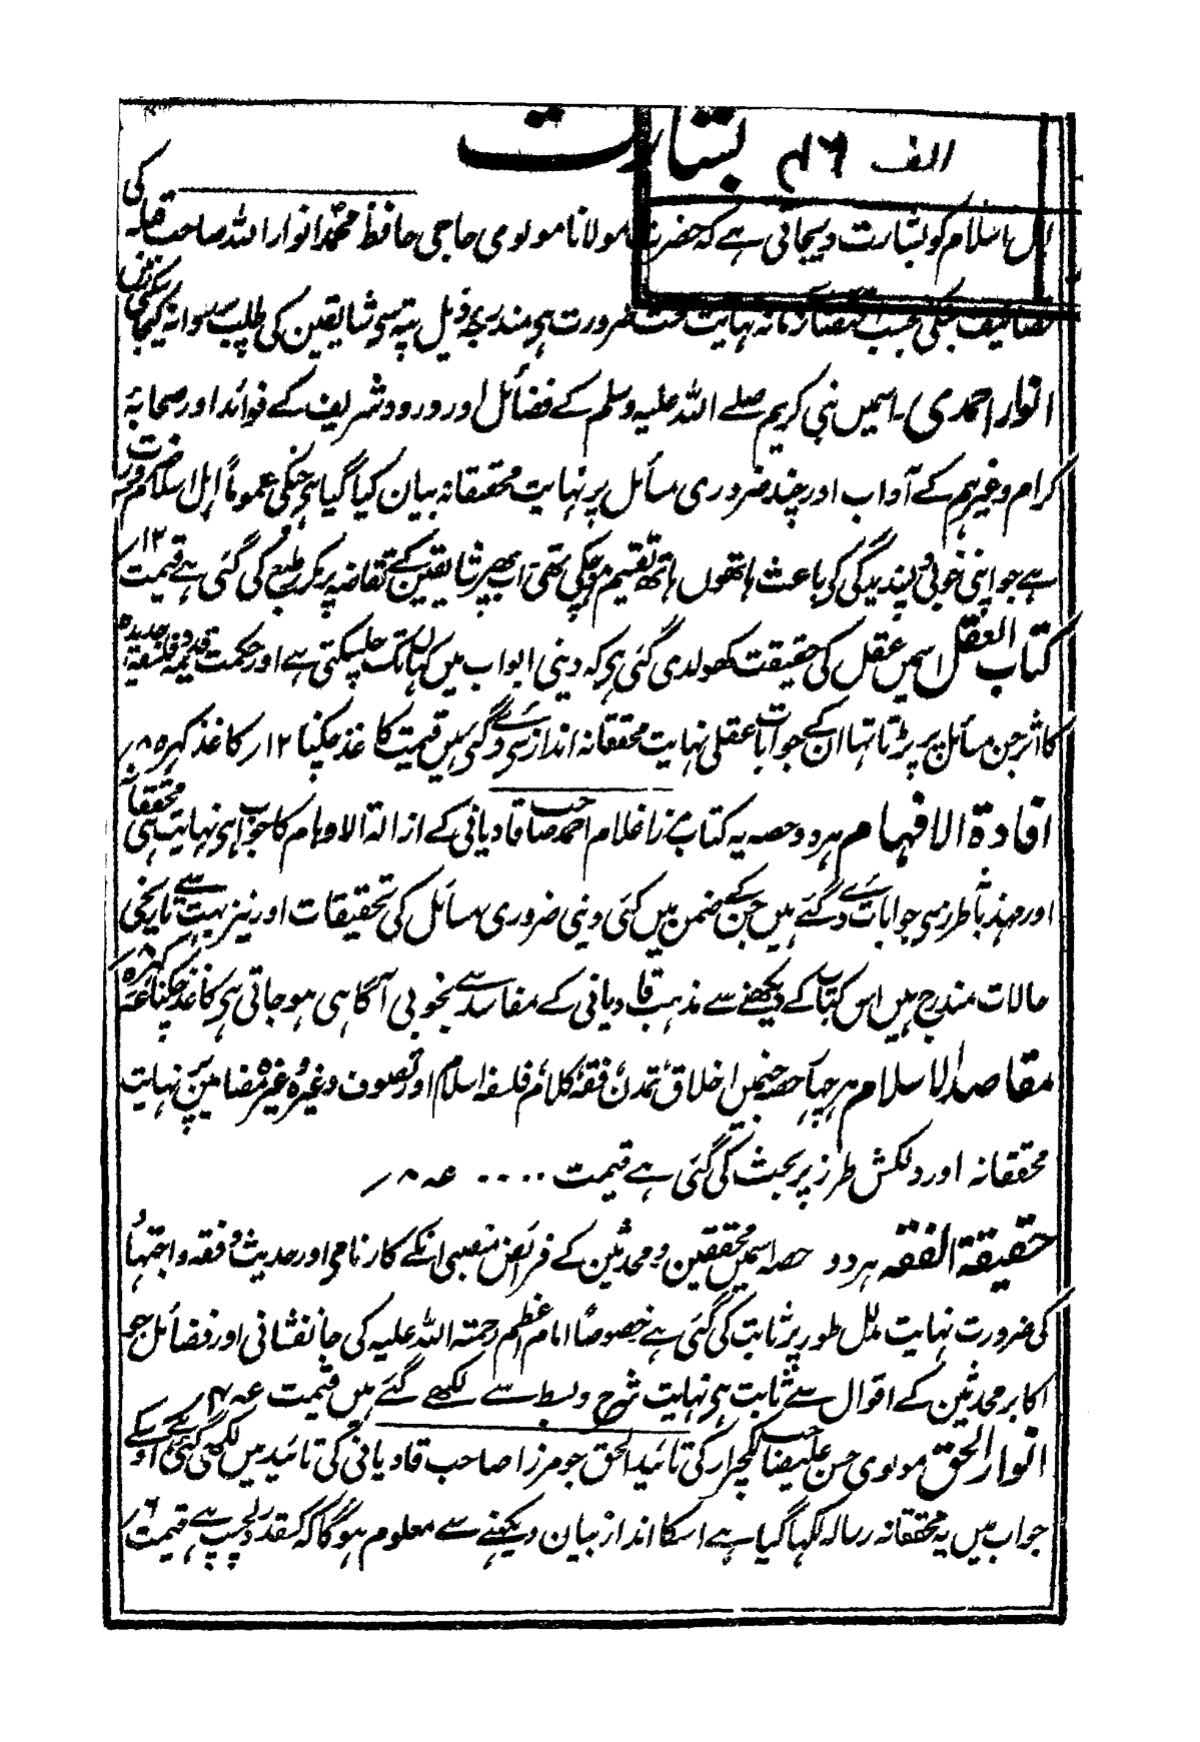 الف ٤٦ بشارت
اہل اسلام کو بشارت دیجاتی ہے کہ حضرت مولانا مولوی حاجی حافظ محمد انوار اللہ صاحب قبلہ کی
تصانیف جنکی بحسب اقتضاء زمانہ نہایت سخت ضرورت ہی مندرجہ ذیل پتہ سی شایقین کی طلب پر روانہ کیجا سکتی ہیں
انوار احمدی۔ اسمیں نبی کریم صلے اللہ علیہ وسلم کے فضائل اور درود شریف کے فوائد اور صحابۂ
کرام وغیرہم کے آداب اور چند ضروری مسائل پر نہایت محققانہ بیان کیا گیا ہی جنکی عموماً اہل اسلام کو ضرورت
ہے جو اپنی خوبی و پسندیدگی کی باعث ہاتھوں ہاتھ تقسیم ہو چکی تھی اب پھر شایقین کے تقاضہ پر مکرر طبع کی گئی ہے قیمت ۱۲ ر
کتاب العقل اسمیں عقل کی حقیقت کھولدی گئی ہی کہ دینی ابواب میں کہانتک چلسکتی ہے اور حکمت قدیمہ و فلسفہ جدیدہ
کا اثر جن مسائل پر پڑتا تہا ان کے جوابات عقلی نہایت محققانہ انداز سی دئے گئی ہیں قیمت کاغذ چکنا ۱۲ ر کاغذ کہرہ ۸ ر
افادۃ الافہام ہر دو حصہ یہ کتاب مرزا غلام احمد صاحب قادیانی کے ازالۃ الاوہام کا جواب ہی نہایت ہی محققانہ
اور مہذب طرز سی جوابات دئے گئے ہیں جن کے ضمن میں کئی دینی ضروری مسائل کی تحقیقات اور نیز بہت سے تاریخی
حالات مندرج ہیں اس کتاب کے دیکھنے سے مذہب قادیانی کے مفاسد سے بخوبی آگاہی ہوجاتی ہی کاغذ چکنا کہرہ
مقاصد الاسلام ہر چہار حصہ جنمیں اخلاق تمدن فقہ کلام فلسفہ اسلام اور تصوف وغیرہ وغیرہ مضامین پر نہایت
محققانہ اور دلکش طرز پر بحث کی گئی ہے قیمت .... عہ ۸ ر
حقیقۃ الفقہ ہر دو حصہ اسمیں محققین و محدثین کے فرائض منصبی انکے کارنامی اور حدیث و فقہ و اجتہاد
کی ضرورت نہایت مدلل طور پر ثابت کی گئی ہے خصوصاً امام اعظم رحمتہ اللہ علیہ کی جانفشانی اور فضائل جو
اکابر محدثین کے اقوال سے ثابت ہی نہایت شرح و بسط سے لکھے گئے ہیں قیمت عہ ۴ ر
انوار الحق مولوی حسن علی صاحب لکچرار کی تائید الحق جو مرزا صاحب قادیانی کی تائید میں لکھی گئی ہے اوسکے
جواب میں یہ محققانہ رسالہ لکہا گیا ہے اسکا انداز بیان دیکہنے سے معلوم ہوگا کہ کسقدر دلچسپ ہے قیمت ۶ ر